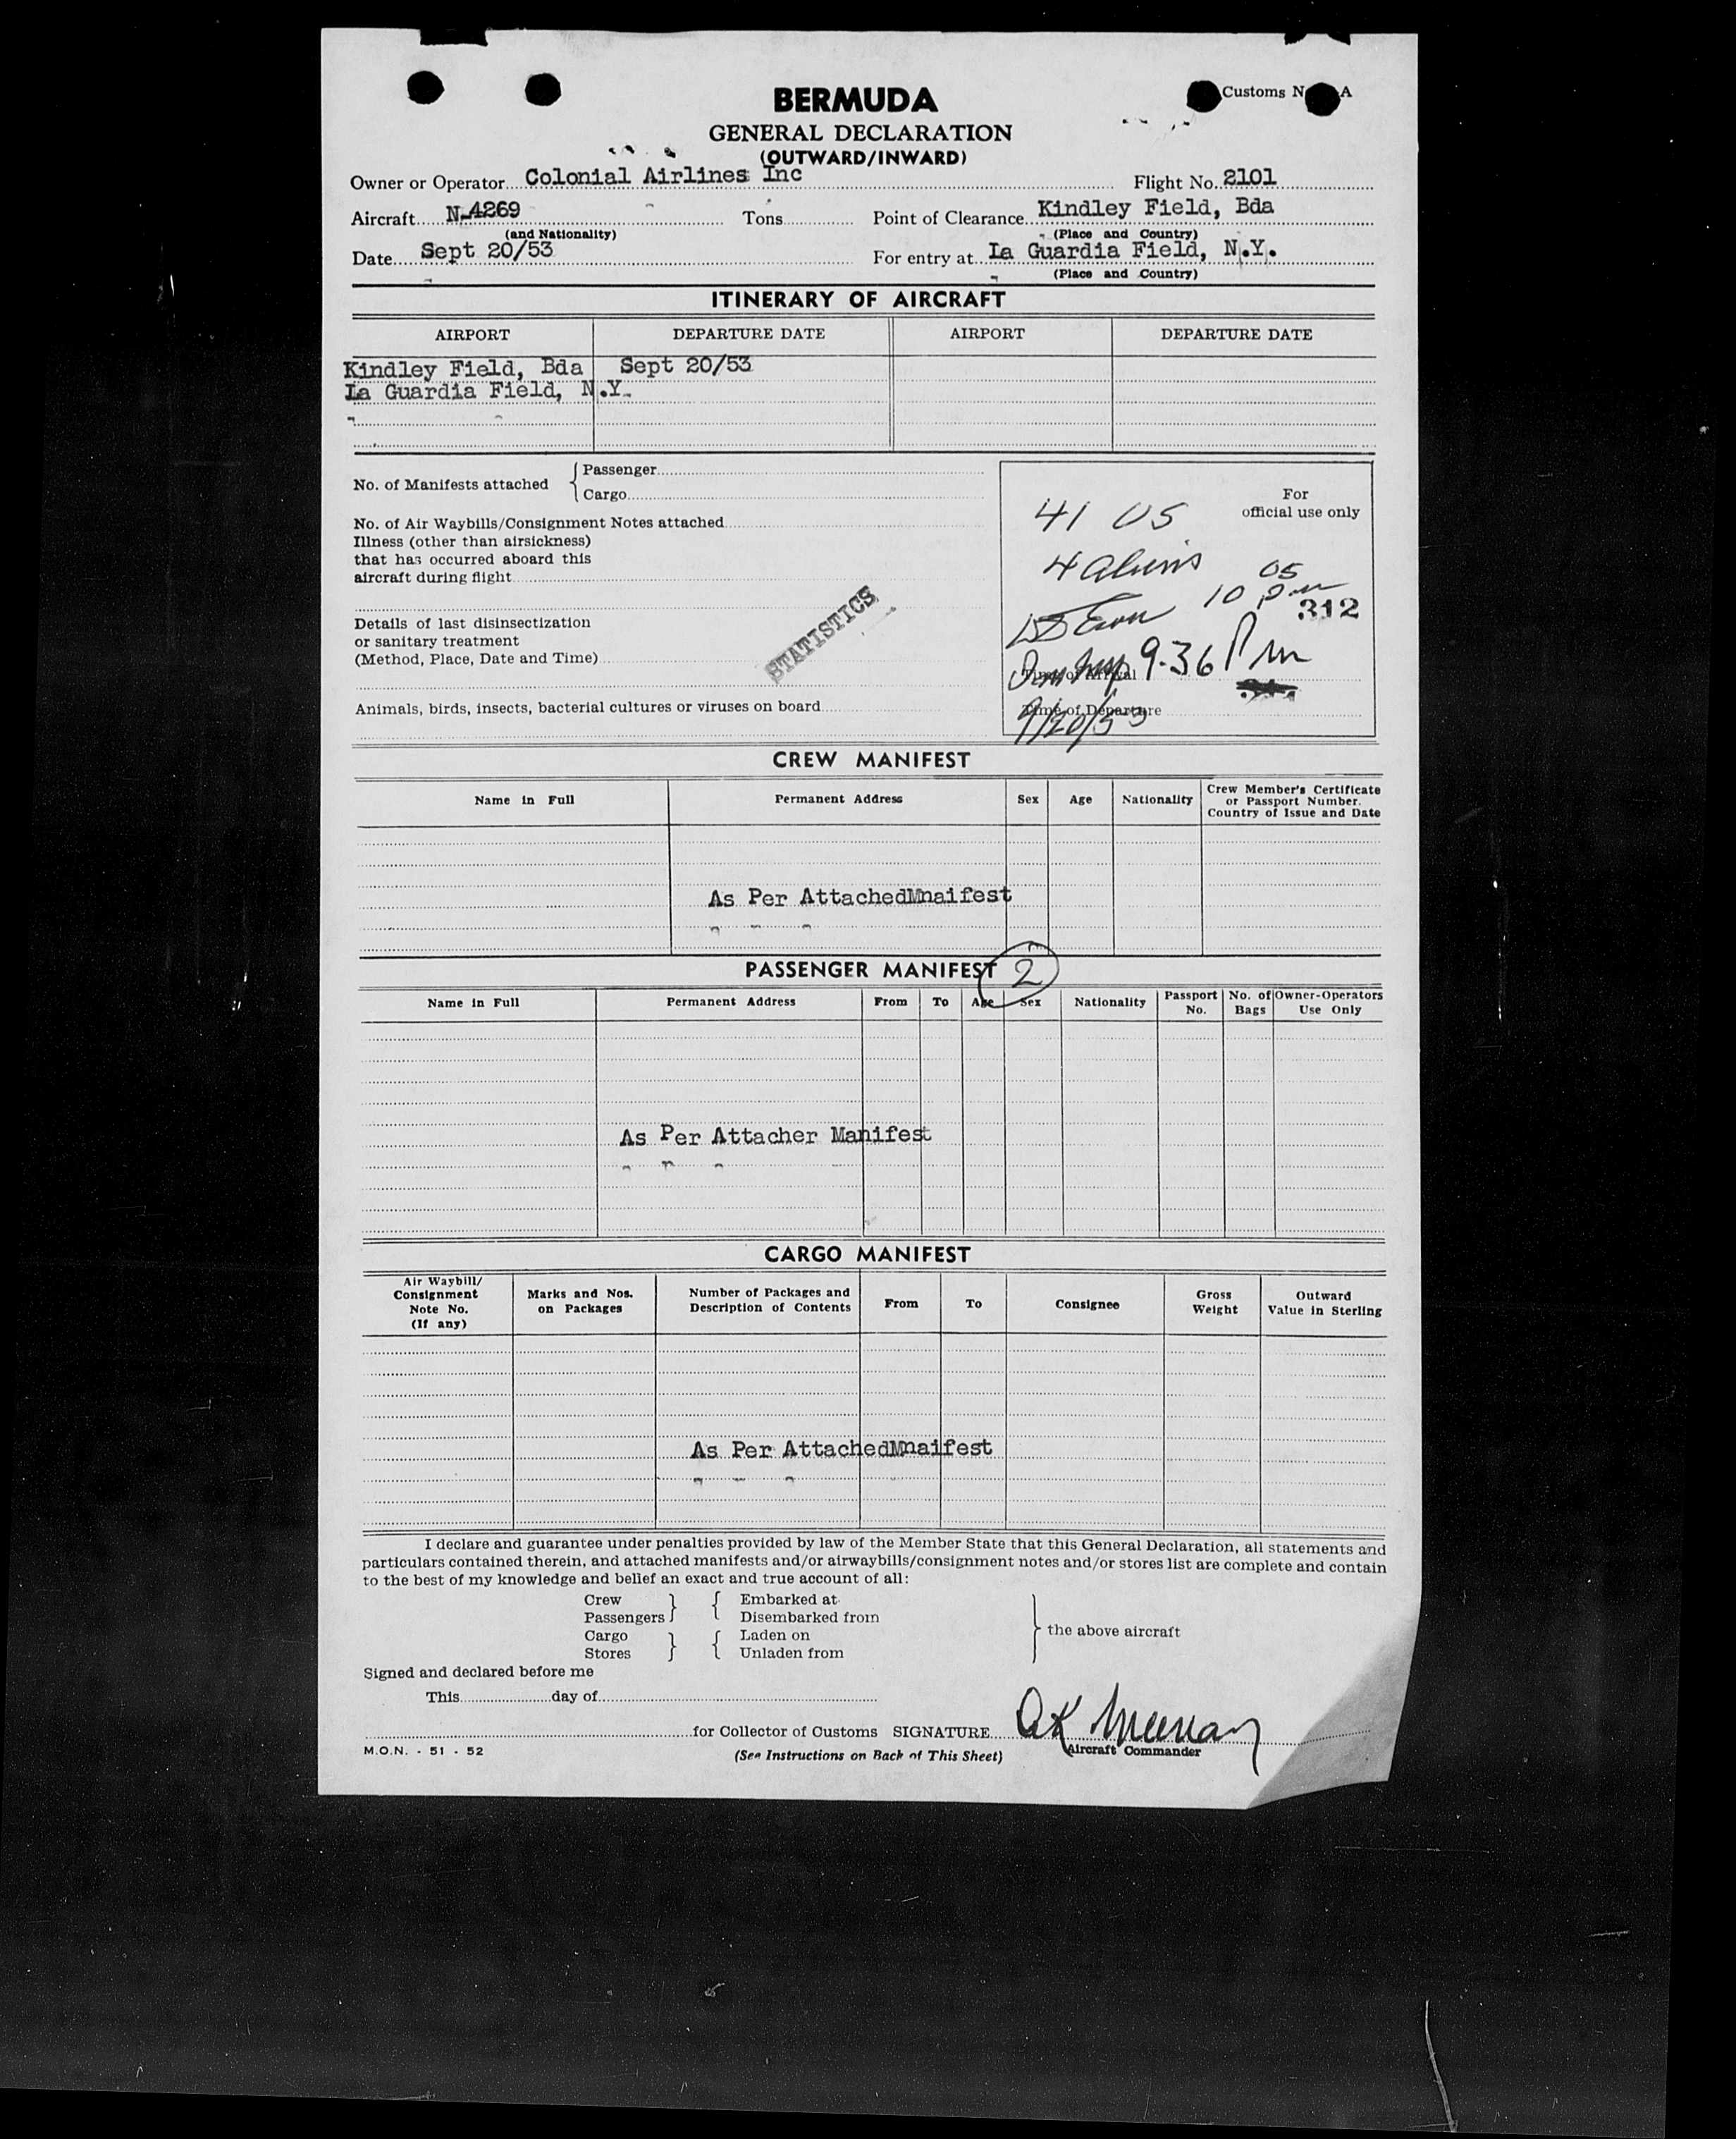 Customs N A
BERMUDA
GENERAL DECLARATION
(OUTWARD/INWARD)
Owner or Operator Colonial Airlines Inc Flight No. 2101
Aircraft N-4269 Tons Point of Clearance Kindley Field, Bda
(and Nationality) (Place and Country)
Date Sept 20/53 For entry at La Guardia Field, N.Y.
(Place and Country)
ITINERARY OF AIRCRAFT
AIRPORT DEPARTURE DATE AIRPORT DEPARTURE DATE
Kindley Field, Bda Sept 20/53
La Guardia Field, N.Y.
No. of Manifests attached Passenger
Cargo
No. of Air Waybills/Consignment Notes attached
Illness (other than airsickness)
that has occurred aboard this
aircraft during flight
Details of last disinsectization
or sanitary treatment
(Method, Place, Date and Time)
Animals, birds, insects, bacterial cultures or viruses on board
STATISTICS
For
official use only
41 US
4 aliens
10 05 pm
312
9-36 Pm
Time of Arrival
Time of Departure
9/20/53
CREW MANIFEST
Name in Full Permanent Address Sex Age Nationality Crew Member's Certificate or Passport Number. Country of Issue and Date
As Per AttachedMnaifest
PASSENGER MANIFEST 2
Name in Full Permanent Address From To Age Sex Nationality Passport No. No. of Bags Owner-Operators Use Only
As Per Attacher Manifest
CARGO MANIFEST
Air Waybill/ Consignment Note No. (If any) Marks and Nos. on Packages Number of Packages and Description of Contents From To Consignee Gross Weight Outward Value in Sterling
As Per AttachedMnaifest
I declare and guarantee under penalties provided by law of the Member State that this General Declaration, all statements and
particulars contained therein, and attached manifests and/or airwaybills/consignment notes and/or stores list are complete and contain
to the best of my knowledge and belief an exact and true account of all:
Crew Embarked at
Passengers Disembarked from
Cargo Laden on the above aircraft
Stores Unladen from
Signed and declared before me
This day of
for Collector of Customs SIGNATURE
Aircraft Commander
M.O.N. - 51 - 52 (See Instructions on Back of This Sheet)